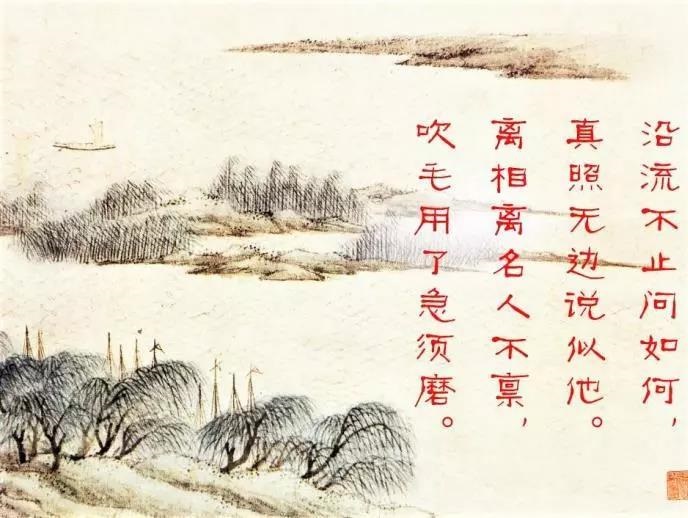 沿流不止问如何，
真照无边说似他。
离相离名人不禀，
吹毛用了急须磨。